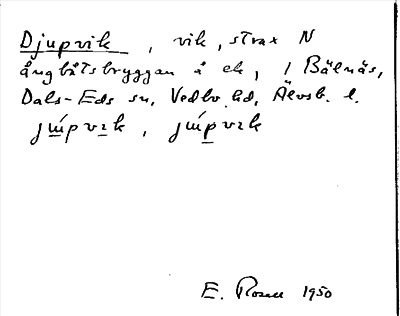 Djupvik, vik, strax N
ångbåtsbryggan å ek, i Bälnäs,
Dals-Eds sn, Vedbo hd, Älvsb. l.
E. Rosell 1950